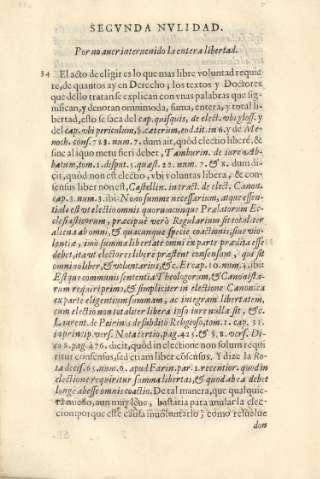 SEGVNDA NVLIDAD.
Por no auer interuenido la entera libertad.
34 El acto de eligir es lo que mas libre voluntad requie
re, de quantos ay en Derecho, y los textos y Doctores
que dello tratan se explican con vnas palabras que sig-
nifican, y denotan omnimoda, suma, entera, y total li-
bertad, esto se saca del cap. quisquis, de elect. vbi gloss. y
del cap. vbi periculum, §. cæterum, eod. tit. in 6. y de Me-
noch. cons. 788. num. 7. dum ait, quòd electio liberè, &
sine aliquo metu fieri debet, Tamburin. de iure Ab-
batum, tom. 1. disput. 5. quæst. 22. num. 7. & 8. dum di-
cit, quòd non est electio, vbi voluntas libera, & con-
sensus liber non est, Castellin. in tract. de elect. Canon.
cap. 2. num. 3. ibi: Nono summè necessarium, atque essen-
tiale est vt electio omnis quorumcunque Prælatorum Ec-
clesiasticorum, præcipuè verò Regularium sit totaliter
aliena ab omni, & quacunque specie coactionis, siue vio-
lentiæ, imò summa libertate omni ex parte prædita esse
debet, ita vt electores liberè præstent consensum, qui sit
omninò liber, & voluntarius, &c. Et cap. 10. num. 2. ibi:
Est in re communis sententia Theologorum, & Canonista-
rum requiri primò, & simpliciter in electione Canonica
ex parte eligentium summam, ac integram libertatem,
cum electio non totaliter libera ipso iure nulla sit, &c.
Laurent. de Peirinis de subdito Religioso, tom. 1. cap. 31.
in princip. vers. Nota tertiò, pag. 425. & §. 8. vers. Di-
co 2. pag. 476. dicit, quòd in electione non solum requi
ritur consensus, sed etiam liber cõsensus. Y dize la Ro-
ta decis. 65. num. 6. apud Farin. par. 2. recentior. quod in
electione requiritur summa libertas, & quod ab ea debet
longè abesse omnis coactio. De tal manera, que qualquie-
ra miedo, aun muy leue, bastaria para anular la elec-
cion porque esse causa inuoluntario, como resuelue
don